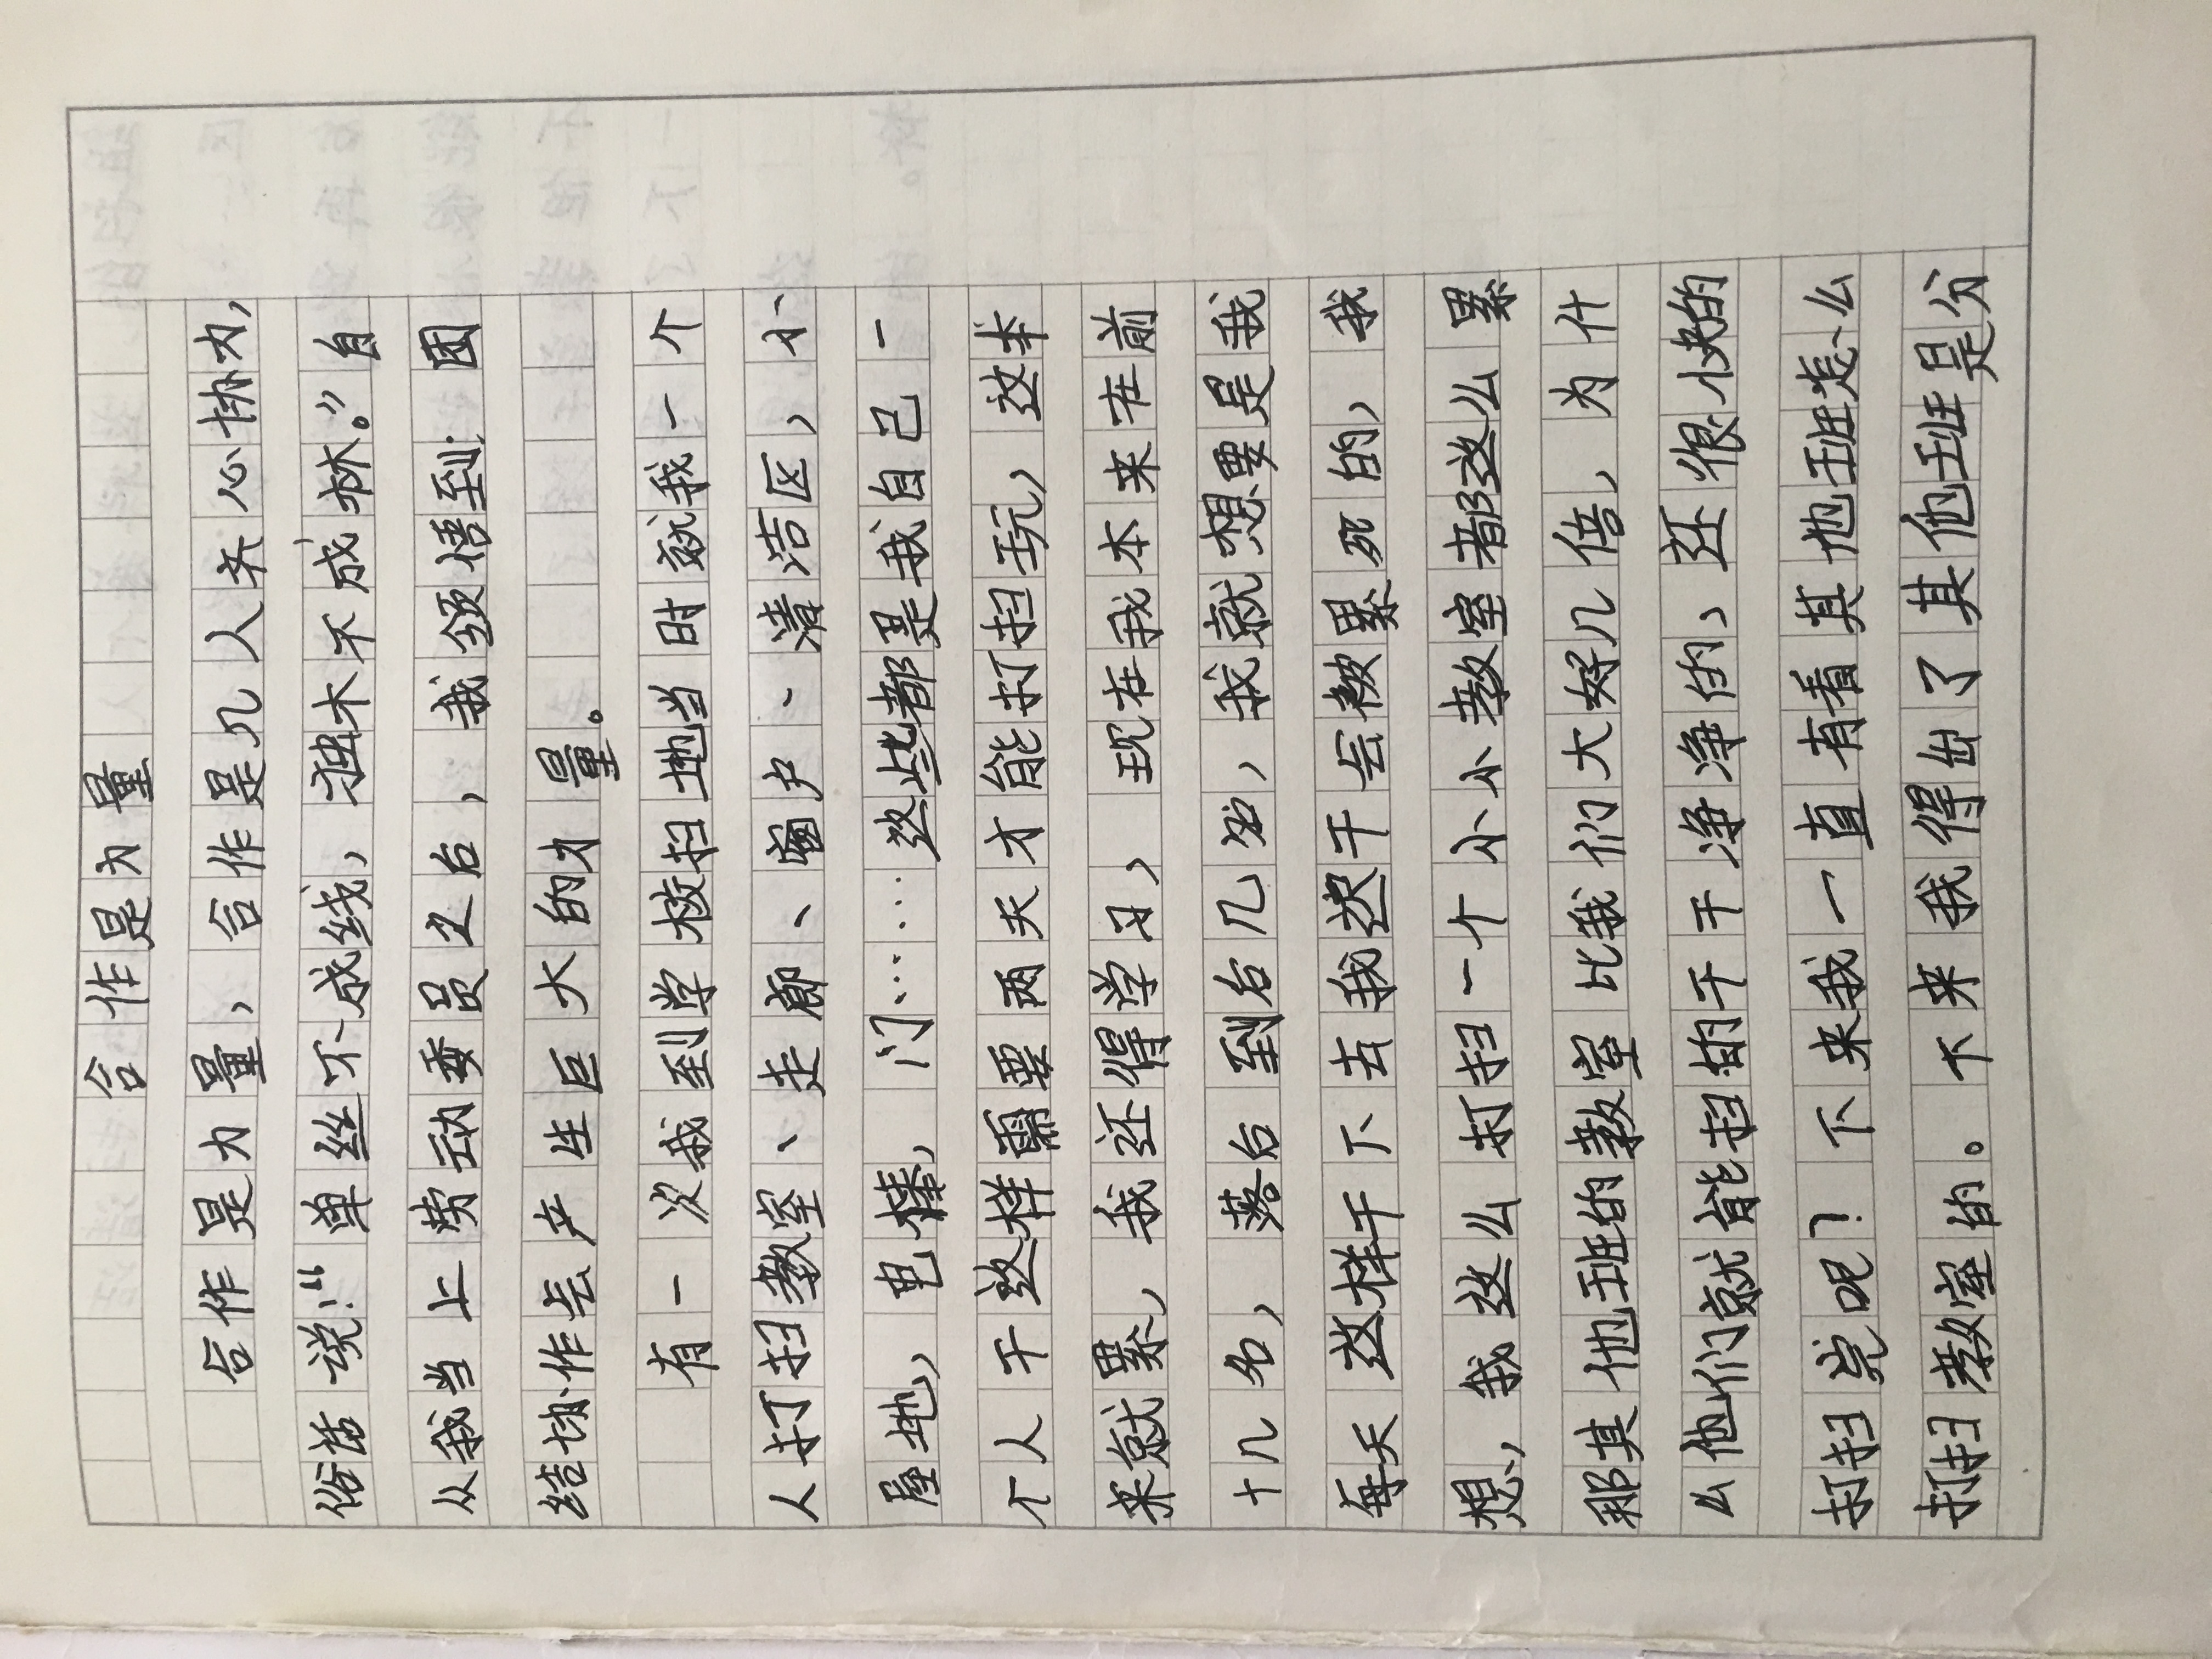 合作是力量
合作是力量，合作是几人齐心协力，
俗话说：“单丝不成线，独木不成林。”自
从我当上劳动委员之后，我领悟到：团
结协作会产生巨大的力量。
有一次我到学校扫地当时就我一个
人打扫教室、走廊、窗户、清洁区，小
屋地，电棒，门……这些都是我自己一
个人干这样需要两天才能打扫玩，这本
来就累，我还得学习，现在我本来在前
十几名，落后到后几名，我就想要是我
每天这样干下去我迟干会被累死的，我
想，我这么打扫一个小小教室都这么累
那其他班的教室比我们大好几倍，为什
么他们就能扫的干干净净的，还很快的
打扫完呢？下来我一直有看其他班怎么
打扫教室的。下来我得出了其他班是分